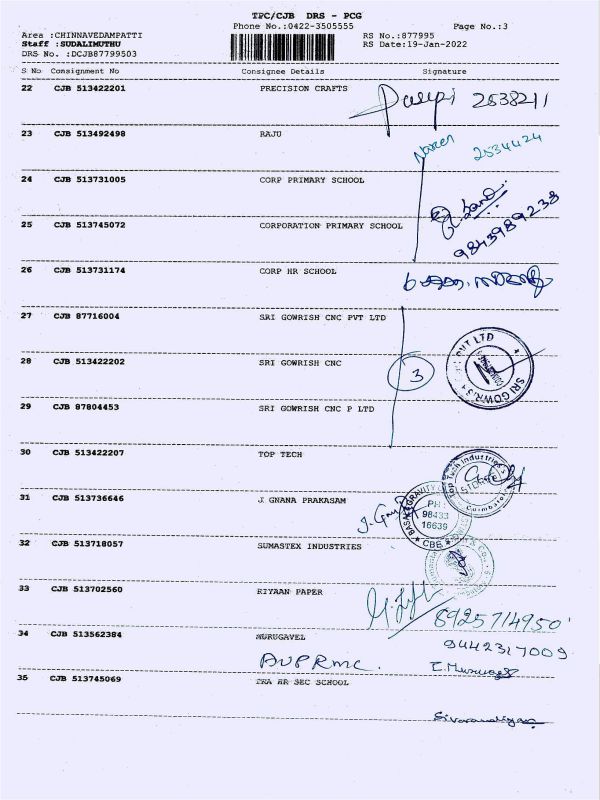 TPC/CJB DRS - PCG
Phone No.:0422-3505555 Page No.:3
Area :CHINNAVEDAMPATTI RS No.:877995
Staff :SUDALIMUTHU RS Date:19-Jan-2022
DRS No. :DCJB87799503
S No Consignment No Consignee Details Signature
22 CJB 513422201 PRECISION CRAFTS 2538211
23 CJB 513492498 RAJU
2534424
24 CJB 513731005 CORP PRIMARY SCHOOL
25 CJB 513745072 CORPORATION PRIMARY SCHOOL
9843989238
26 CJB 513731174 CORP HR SCHOOL
27 CJB 87716004 SRI GOWRISH CNC PVT LTD
28 CJB 513422202 SRI GOWRISH CNC 3
29 CJB 87804453 SRI GOWRISH CNC P LTD
30 CJB 513422207 TOP TECH
Top Tech Industries
STORES
Coimbatore
31 CJB 513736646 J. GNANA PRAKASAM
PH:
98433
16639
CBE
32 CJB 513718057 SUMASTEX INDUSTRIES
33 CJB 513702560 RIYAAN PAPER
8925714950
34 CJB 513562384 MURUGAVEL
9442317009
35 CJB 513745069 TRA HR SEC SCHOOL